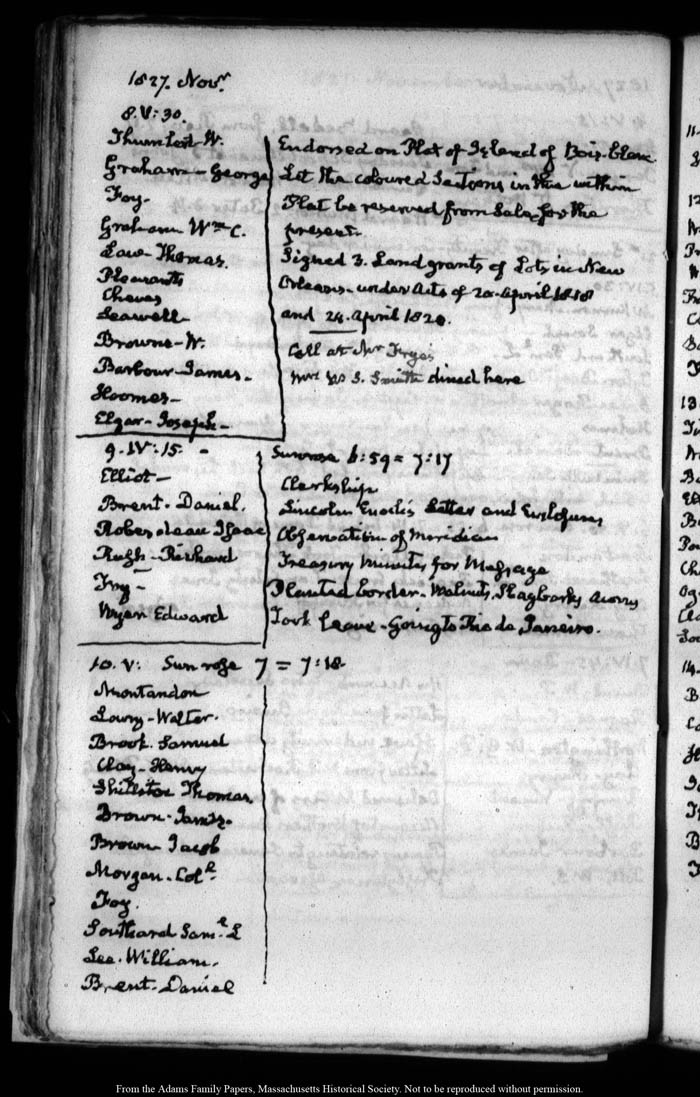 1827. Novr.
8. V: 30.
Graham - George
Foy -
Graham Wm C.
Law - Thomas.
Pleasants
Cheves
Seawell -
Browne - W.
Barbour James -
Hoomes -
Elgar - Joseph -
Endorsed on Plat of Island of Bois. blanc
Let the coloured Sections in the within
Plat be reserved from Sale, for the
present.
Signed 3. Land grants of Lots in New
Orleans - under Acts of 20. April 1818
and 24. April 1820.
Call at Mr Frye's
Mrs W. S. Smith dined here
9. IV: 15. -
Elliot -
Brent - Daniel.
Roberdeau Isaac
Rush - Richard
Fry -
Wyer Edward
Sunrose 6: 59 = 7: 17
Clerkship
Lincoln Enoch's Letter and Enclosures
Observation of Meridian
Treasury Minutes for Message
Planted border - Walnuts, Shagbarks Acorns
Took leave - Going to Rio de Janeiro.
10. V: Sun rose 7 = 7: 18.
Montandon
Lowry - Walter.
Brook. Samuel
Clay - Henry
Thomas,
Brown - James.
Brown Jacob
Morgan. Coll.
Foy.
Southard Saml. L
Lee. William.
Brent - Daniel
From the Adams Family Papers, Massachusetts Historical Society. Not to be reproduced without permission.